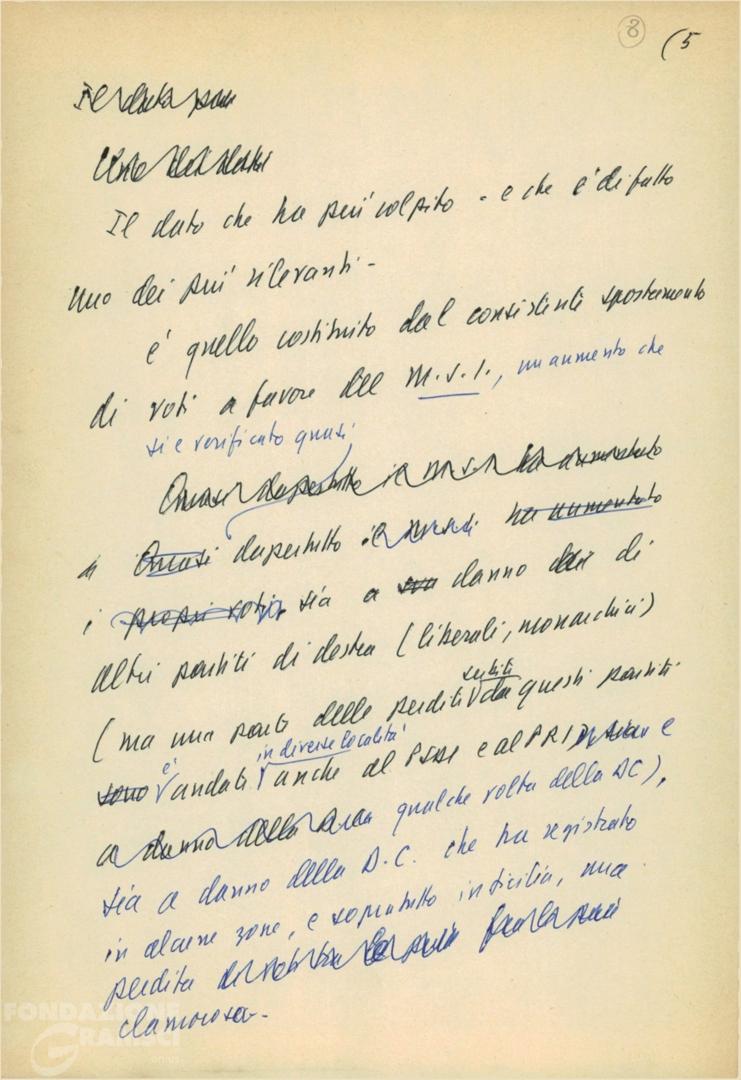 8 (5
Il dato più
Il dato che ha più colpito - e che è di fatto
uno dei più rilevanti -
è quello costituito dal consistente spostamento
di voti a favore del M.S.I., un aumento che
si è verificato quasi
Quasi dapertutto il M.S.I. ha aumentato
Quasi dapertutto il ha aumentato
i propri voti, sia a danno di
altri partiti di destra (liberali, monarchici)
(ma una parte delle perdite subiti da questi partiti
sono è andati in diverse località anche al PSDI e al PRI e
a danno della qualche volta della DC),
sia a danno della D.C. che ha registrato
in alcune zone, e sopratutto in Sicilia, una
perdita
clamorosa.
FONDAZIONE
GRAMSCI